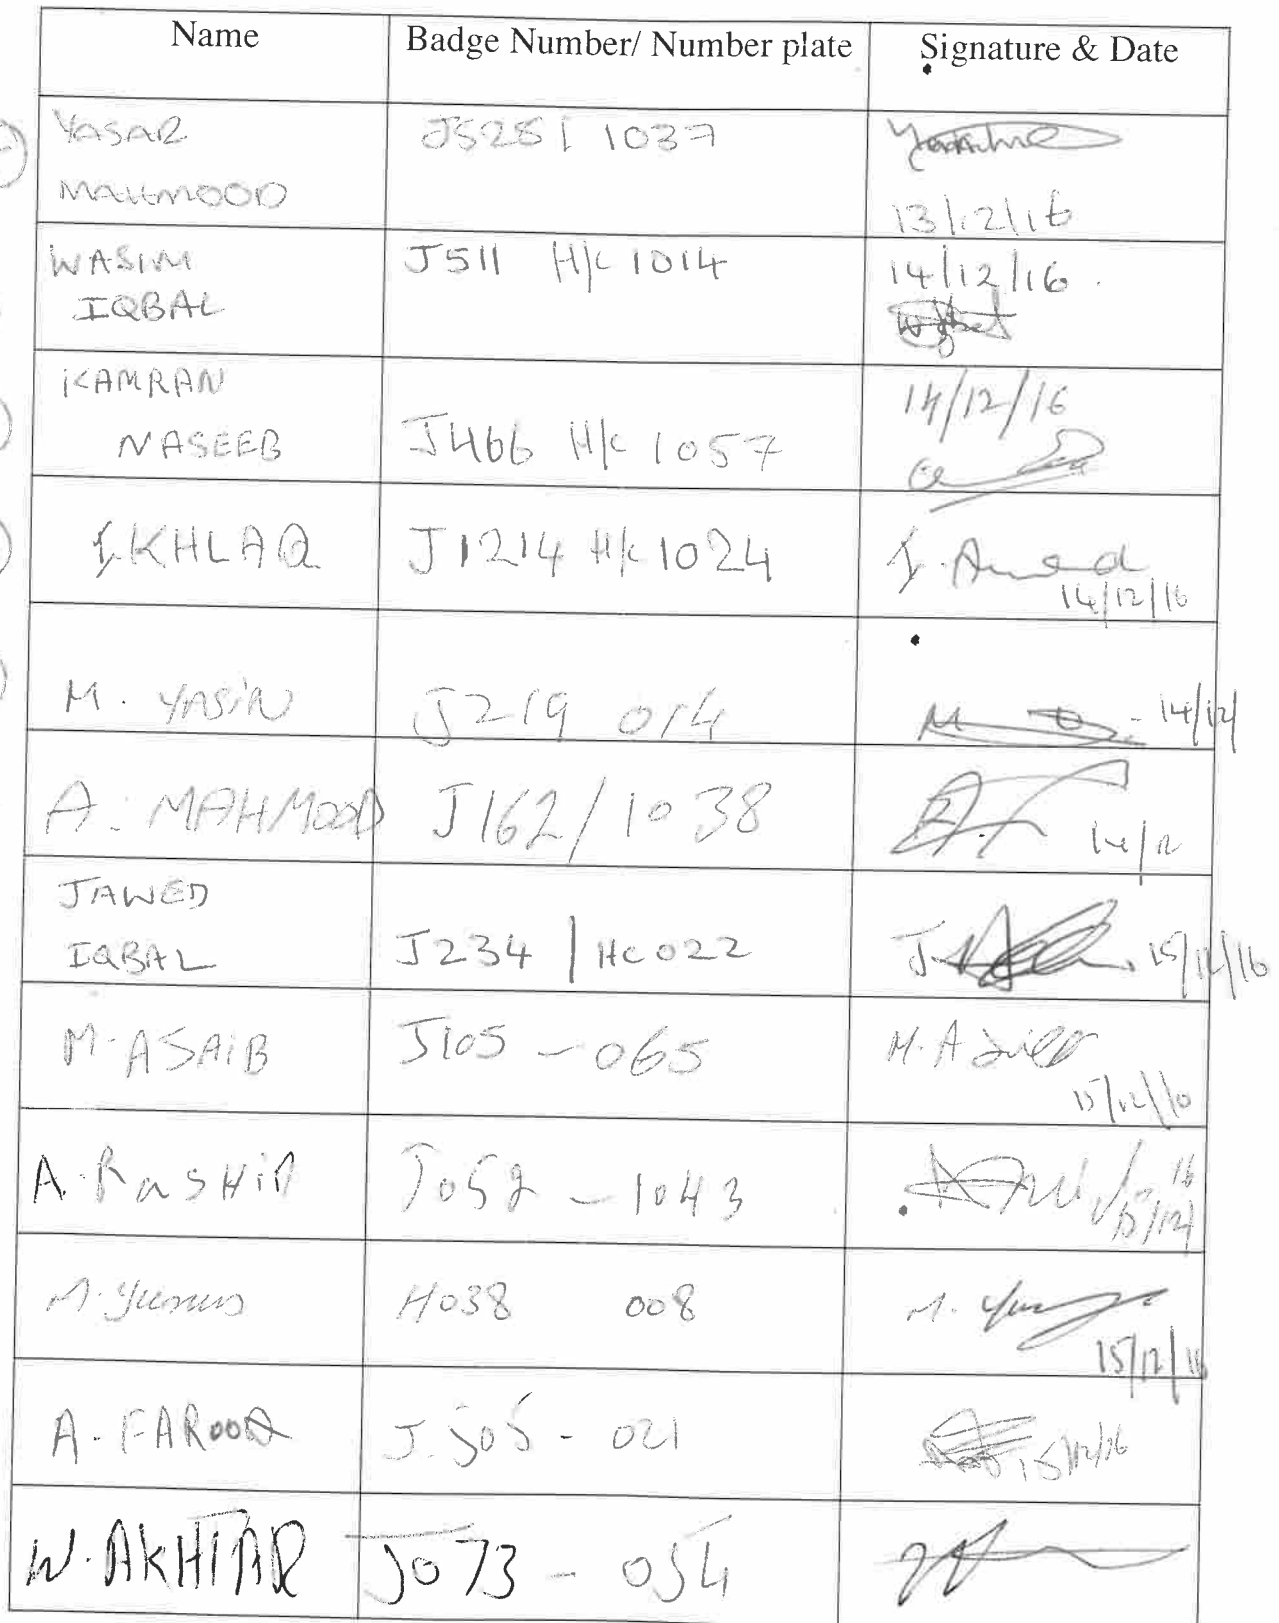 Name Badge Number/ Number plate Signature & Date
YASAR J5281 1037
MAHMOOD 13/12/16
WASIM J511 H/C 1014 14/12/16.
IQBAL
KAMRAN 14/12/16
NASEEB J466 H/C 1057
I.KHLAQ J1214 H/C 1024
14/12/16
M. YASIN J219 014 14/12/
A. MAHMOOD J162/1038 14/12
JAWED
IQBAL J234 / HC022 J. 15/12/16
M. ASAIB J105 - 065 M. A
15/12/16
A. RaSHiD J052 - 1043 15/12/16
M. Yunus H038 008 M. Yunus
15/12/16
A. FAROOQ J. 505 - 021 15/12/16
W. AKHTAR J073 - 054